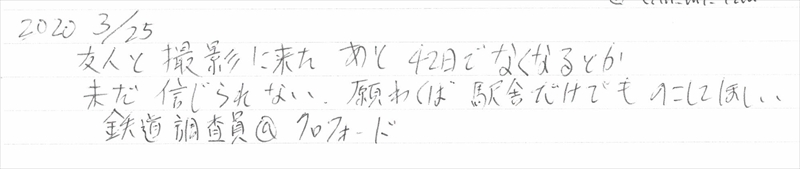 2020 3/25
友人と 撮影に来た あと 42日でなくなるとか
未だ 信じられない. 願わくば 駅舎だけでも のこしてほしい
鉄道調査員@クロフォード